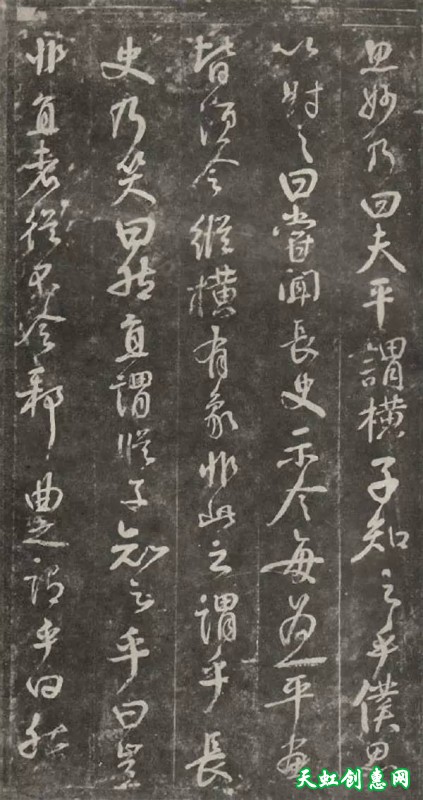 思妙乃曰夫平謂橫子知之乎僕思
以對之曰嘗聞長史示令每為一平畫
皆須令縱橫有象非此之謂乎長
史乃笑曰然直謂從子知之乎曰豈
非直者從不令邪曲之謂乎曰然
天虹创惠网